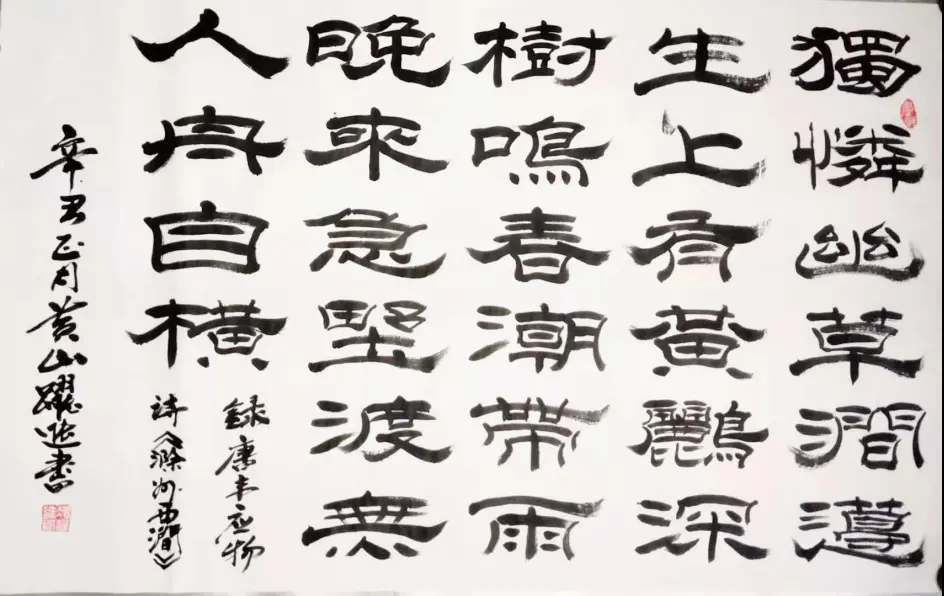 獨憐幽草澗邊
生上有黃鸝深
樹鳴春潮帶雨
晚來急野渡無
人舟自橫
録唐韦应物
诗《滁州西澗》
辛丑正月黄山躍進書